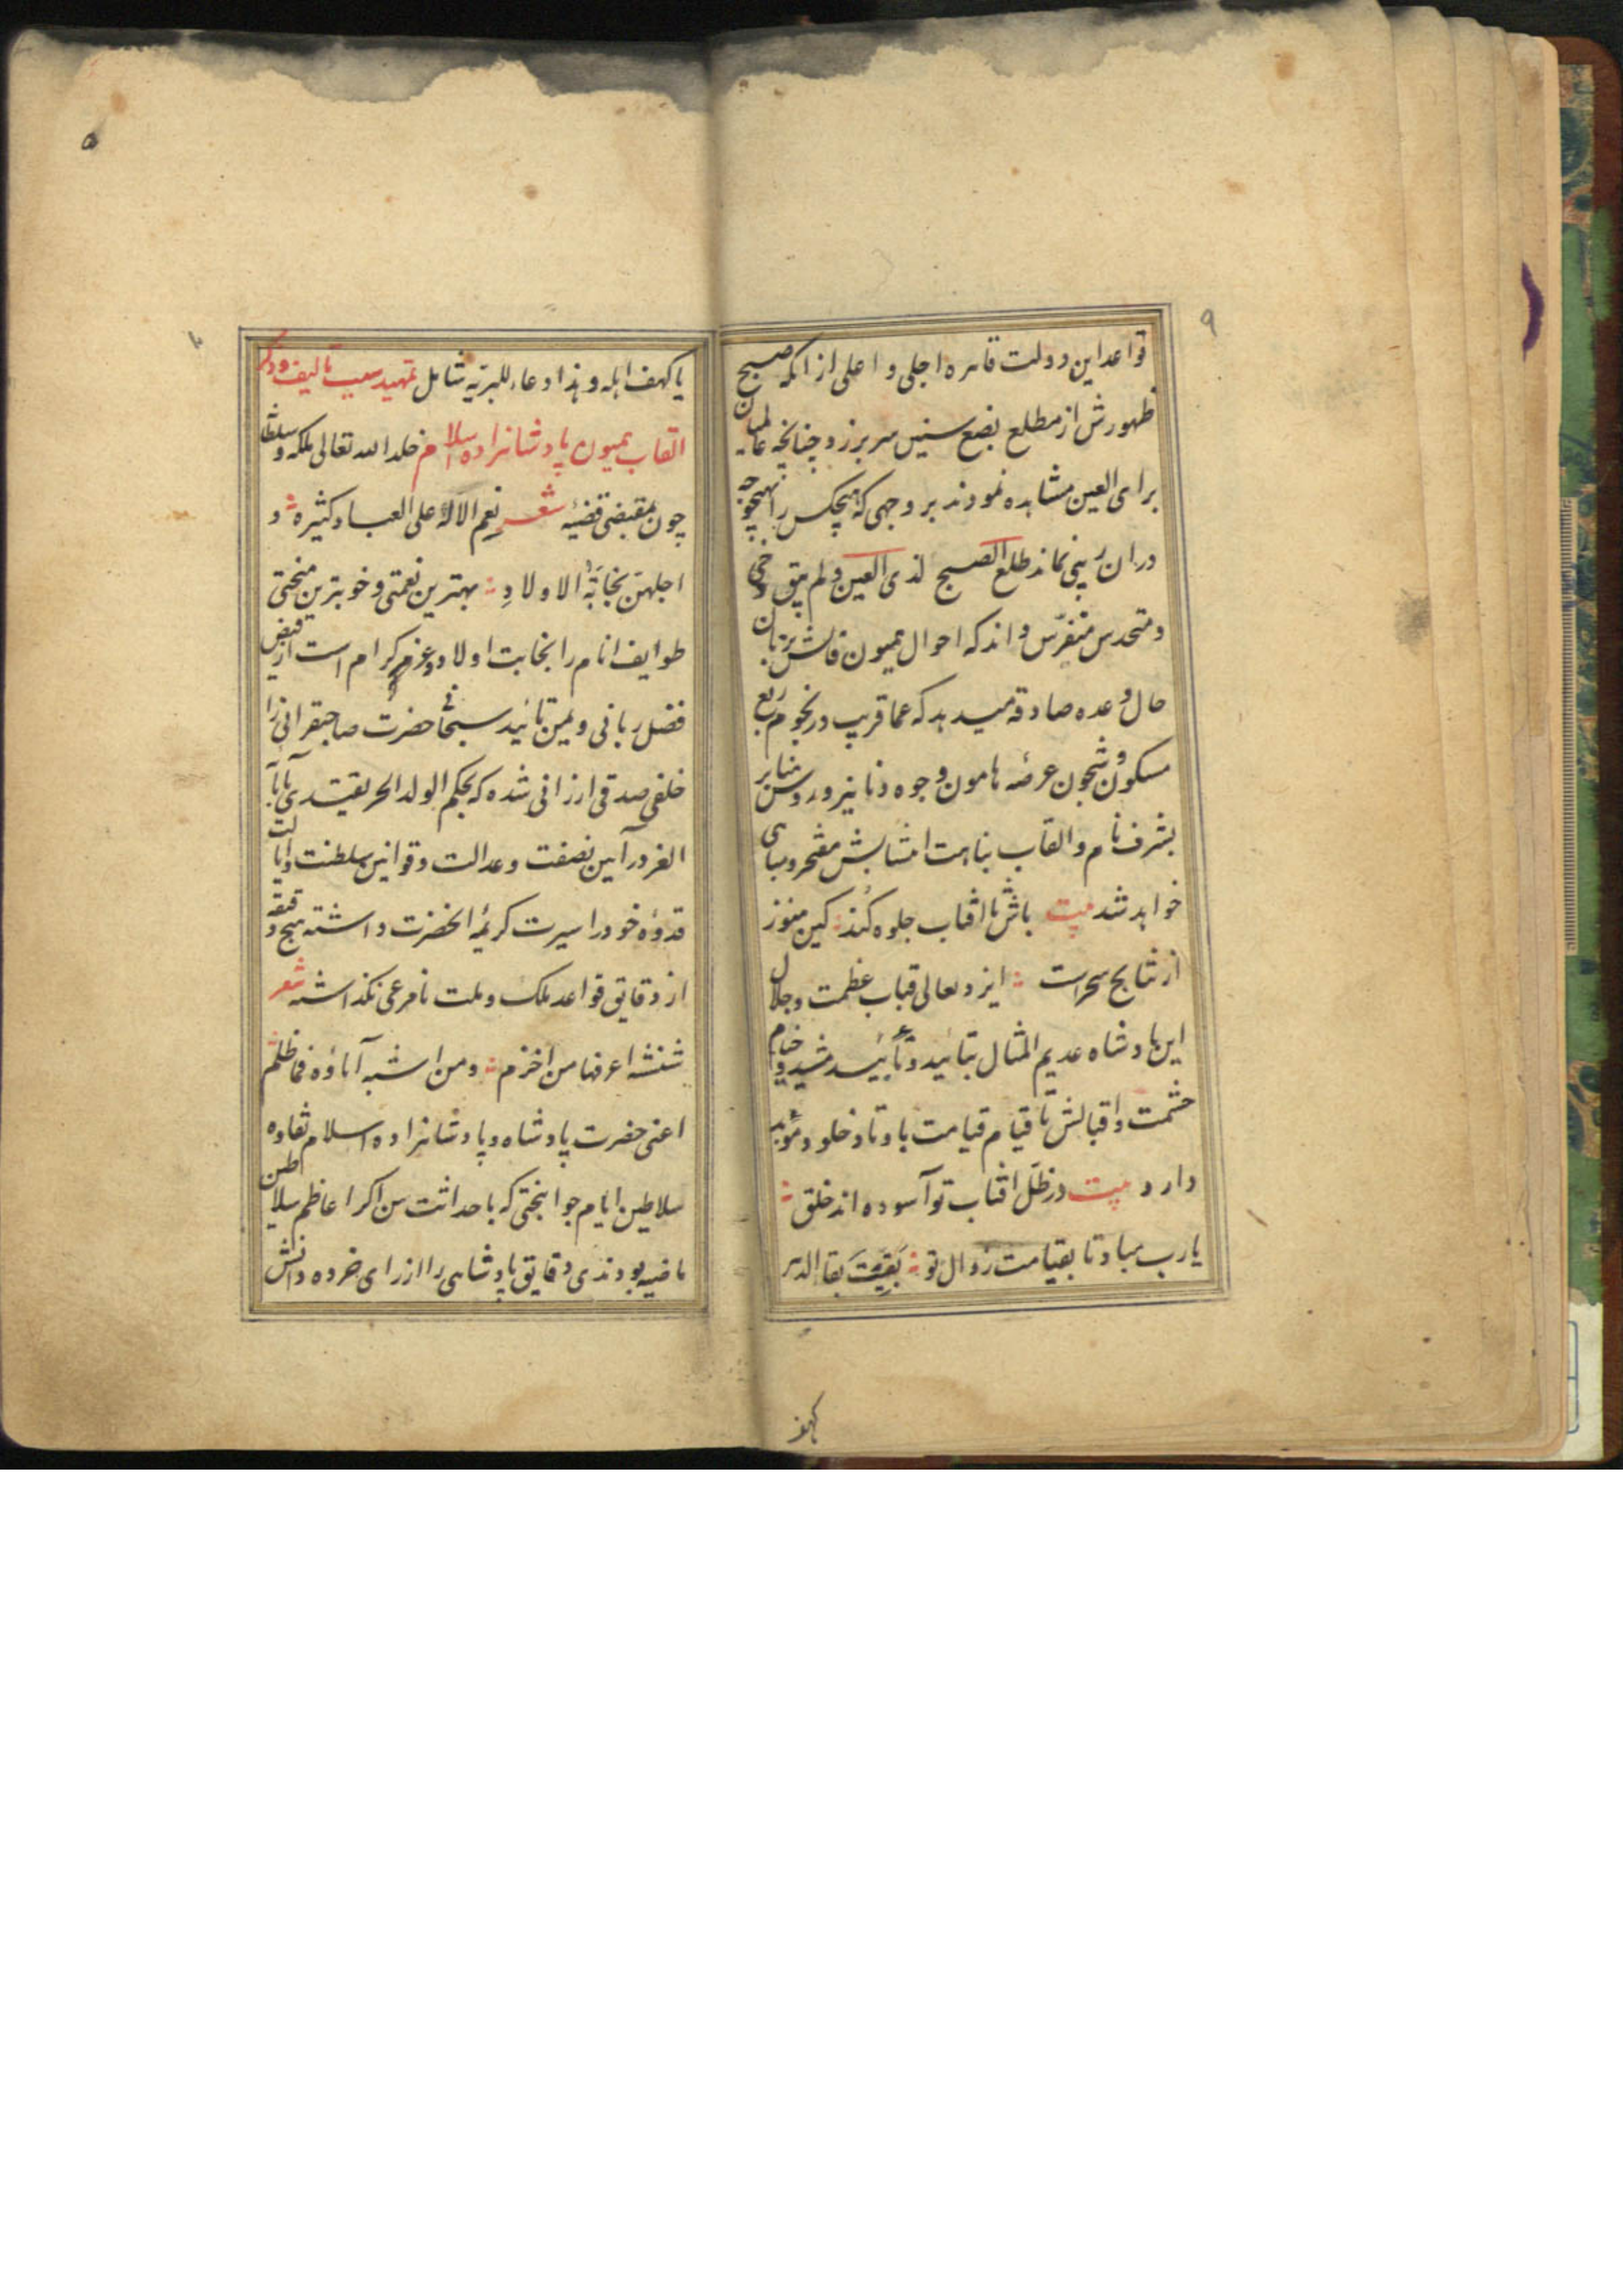 ۹
قواعد این دولت قاهره اجلی و اعلی از آنکه صبح
ظهورش از مطلع بضع سنین سر برزد چنانچه عالمیان
برای العین مشاهده نمودند بر وجهی که هیچکس را بهیچوجه
دران ریبی نماند طلع الصبح لذی العین و لم یبق خفی
و متحدس متفرّس داند که احوال همیون فالش بزبان
حال وعده صادقه میدهد که عما قریب در نجوم ربع
مسکون و شجون عرصه هامون وجوه دنانیر و رؤس منابر
بشرف نام و القاب بناهت انتسابش مفتخر و مباهی
خواهد شد بیت باش تا افتاب جلوه کند کین هنوز
از نتایج سحرست ایزد تعالی قباب عظمت و جلال
این پادشاه عدیم المثال بتائید و تأبید مشید و خیام
حشمت و اقبالش تا قیام قیامت باوتاد خلود مؤبد
دارد بیت در ظلّ افتاب تو آسوده اند خلق
یارب مباد تا بقیامت زوال تو بَقِیتَ بقا الدهر
کهف
۵
۱۰
یا کهف اهله و هذا دعاء للبریّه شامل تمهید سبب تالیف و ذکر
القاب همیون پادشاهزاده اسلام خلد الله تعالی ملکه و سلطانه
چون بمقتضی قضیّه شعر نعم الاله علی العباد کثیرة و
اجلهنّ نجابَةُ الاولادِ بهترین نعمتی و خوبترین منحتی
طوایف انام را نجابت اولاد و عزم کرام است از فیض
فضل ربانی و یمن تائید سبحانی حضرت صاحبقرانی را
خلفی صدقی ارزانی شده که بحکم الولد الحر یقتدی بآبائه
الغر در آیین نصفت و عدالت و قوانین سلطنت و ایالت
قدوهٔ خود را سیرت کریمه انحضرت داشته هیچ دقیقه
از دقایق قواعد ملک و ملت نامرعی نکذاشته شعر
شنشنة اعرفها من اخزم و من اشبه آباؤه فما ظلم
اعنی حضرت پادشاه و پادشاهزاده اسلام نقاوه
سلاطین ایام جوانبختی که با حداثت سن اکر اعاظم سلاطین
ماضیه بودندی دقایق پادشاهی را از رای خرده دانش